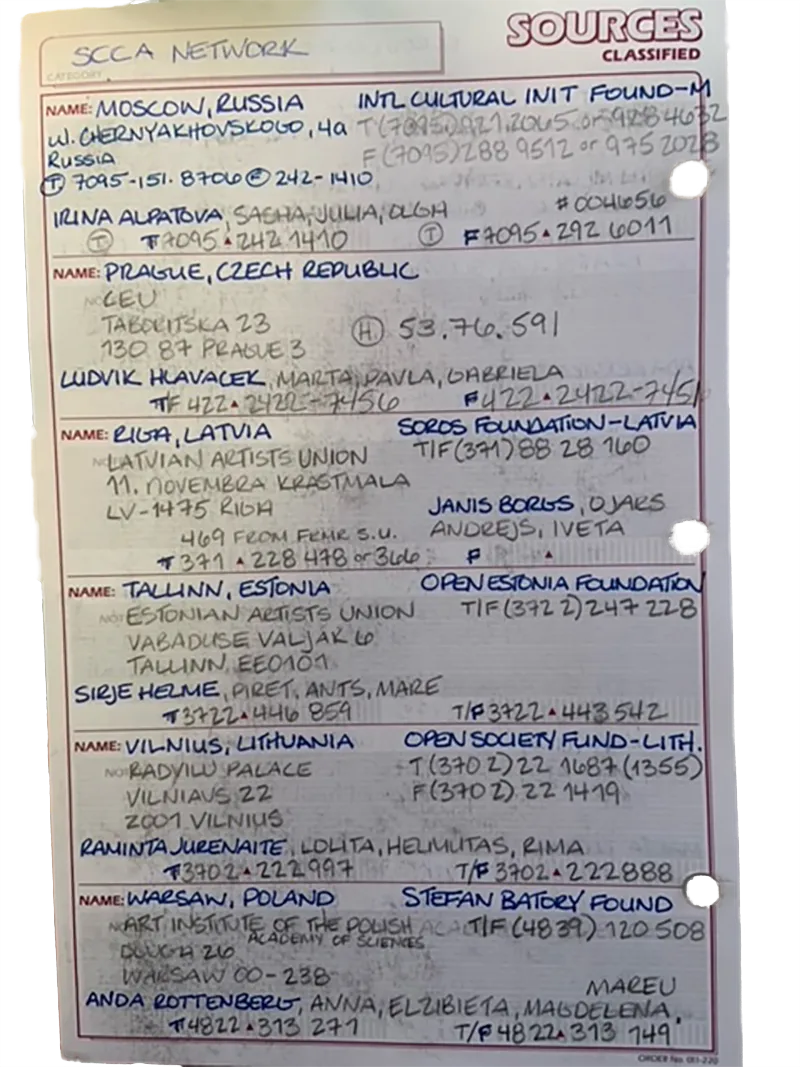 SOURCES
CLASSIFIED
SCCA NETWORK
CATEGORY
NAME: MOSCOW, RUSSIA INTL CULTURAL INIT FOUND-M
Ul. CHERNYAKHOVSKOGO, 4a T(7095)921.2065 or 928 4632
RUSSIA F(7095)288 9512 or 975 2028
T 7095-151.8706 F 242-1410
IRINA ALPATOVA, SASHA, JULIA, OLGA #004656
T T 7095 ▲ 242 1410 T F 7095 ▲ 292 6011
NAME: PRAGUE, CZECH REPUBLIC
CEU
TABORITSKA 23 H. 53.76.591
130 87 PRAGUE 3
LUDVIK HLAVACEK, MARTA, PAVLA, GABRIELA
T/F 422 ▲ 2422-7456 F 422 ▲ 2422-7451
NAME: RIGA, LATVIA SOROS FOUNDATION-LATVIA
LATVIAN ARTISTS UNION T/F(371)88 28 160
11. NOVEMBRA KRASTMALA
LV-1475 RIGA JANIS BORGS, OJARS
469 FROM FRMR S.U. ANDREJS, IVETA
T 371 ▲ 228 478 or 366 F ▲
NAME: TALLINN, ESTONIA OPEN ESTONIA FOUNDATION
ESTONIAN ARTISTS UNION T/F(372 2)247 228
VABADUSE VALJAK 6
TALLINN, EE0101
SIRJE HELME, PIRET, ANTS, MARE
T 3722 ▲ 446 859 T/F 3722 ▲ 443 542
NAME: VILNIUS, LITHUANIA OPEN SOCIETY FUND-LITH.
RADVILU PALACE T(370 2)22 1687(1355)
VILNIAUS 22 F(370 2) 22 1419
2001 VILNIUS
RAMINTA JURENAITE, LOLITA, HELMUTAS, RIMA
T 3702 ▲ 222997 T/F 3702 ▲ 222888
NAME: WARSAW, POLAND STEFAN BATORY FOUND
ART INSTITUTE OF THE POLISH T/F(4839) 120 508
ACADEMY OF SCIENCES
DLUGA 26
WARSAW 00-238 MAREU
ANDA ROTTENBERG, ANNA, ELZIBIETA, MAGDELENA,
T 4822 ▲ 313 271 T/F 4822 ▲ 313 149
ORDER No. 011-220